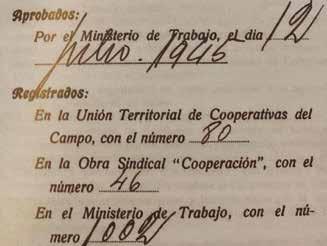 Aprobados:
Por el Ministerio de Trabajo, el día 12
julio. 1946
Registrados:
En la Unión Territorial de Cooperativas del
Campo, con el número 80
En la Obra Sindical "Cooperación", con el
número 46
En el Ministerio de Trabajo, con el nú-
mero 1002